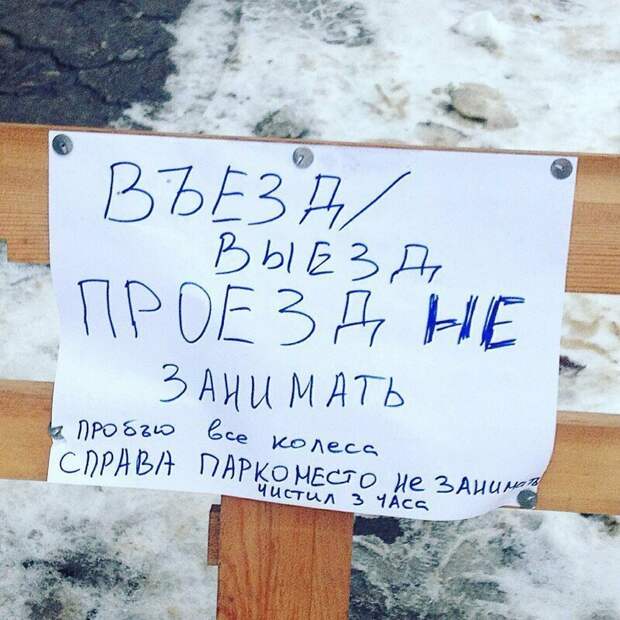 ВЪЕЗД/
ВЫЕЗД
ПРОЕЗД НЕ
ЗАНИМАТЬ
ПРОБЬЮ все колеса
СПРАВА ПАРКОМЕСТО не ЗАНИмать
ЧИСТИЛ 3 ЧАСа